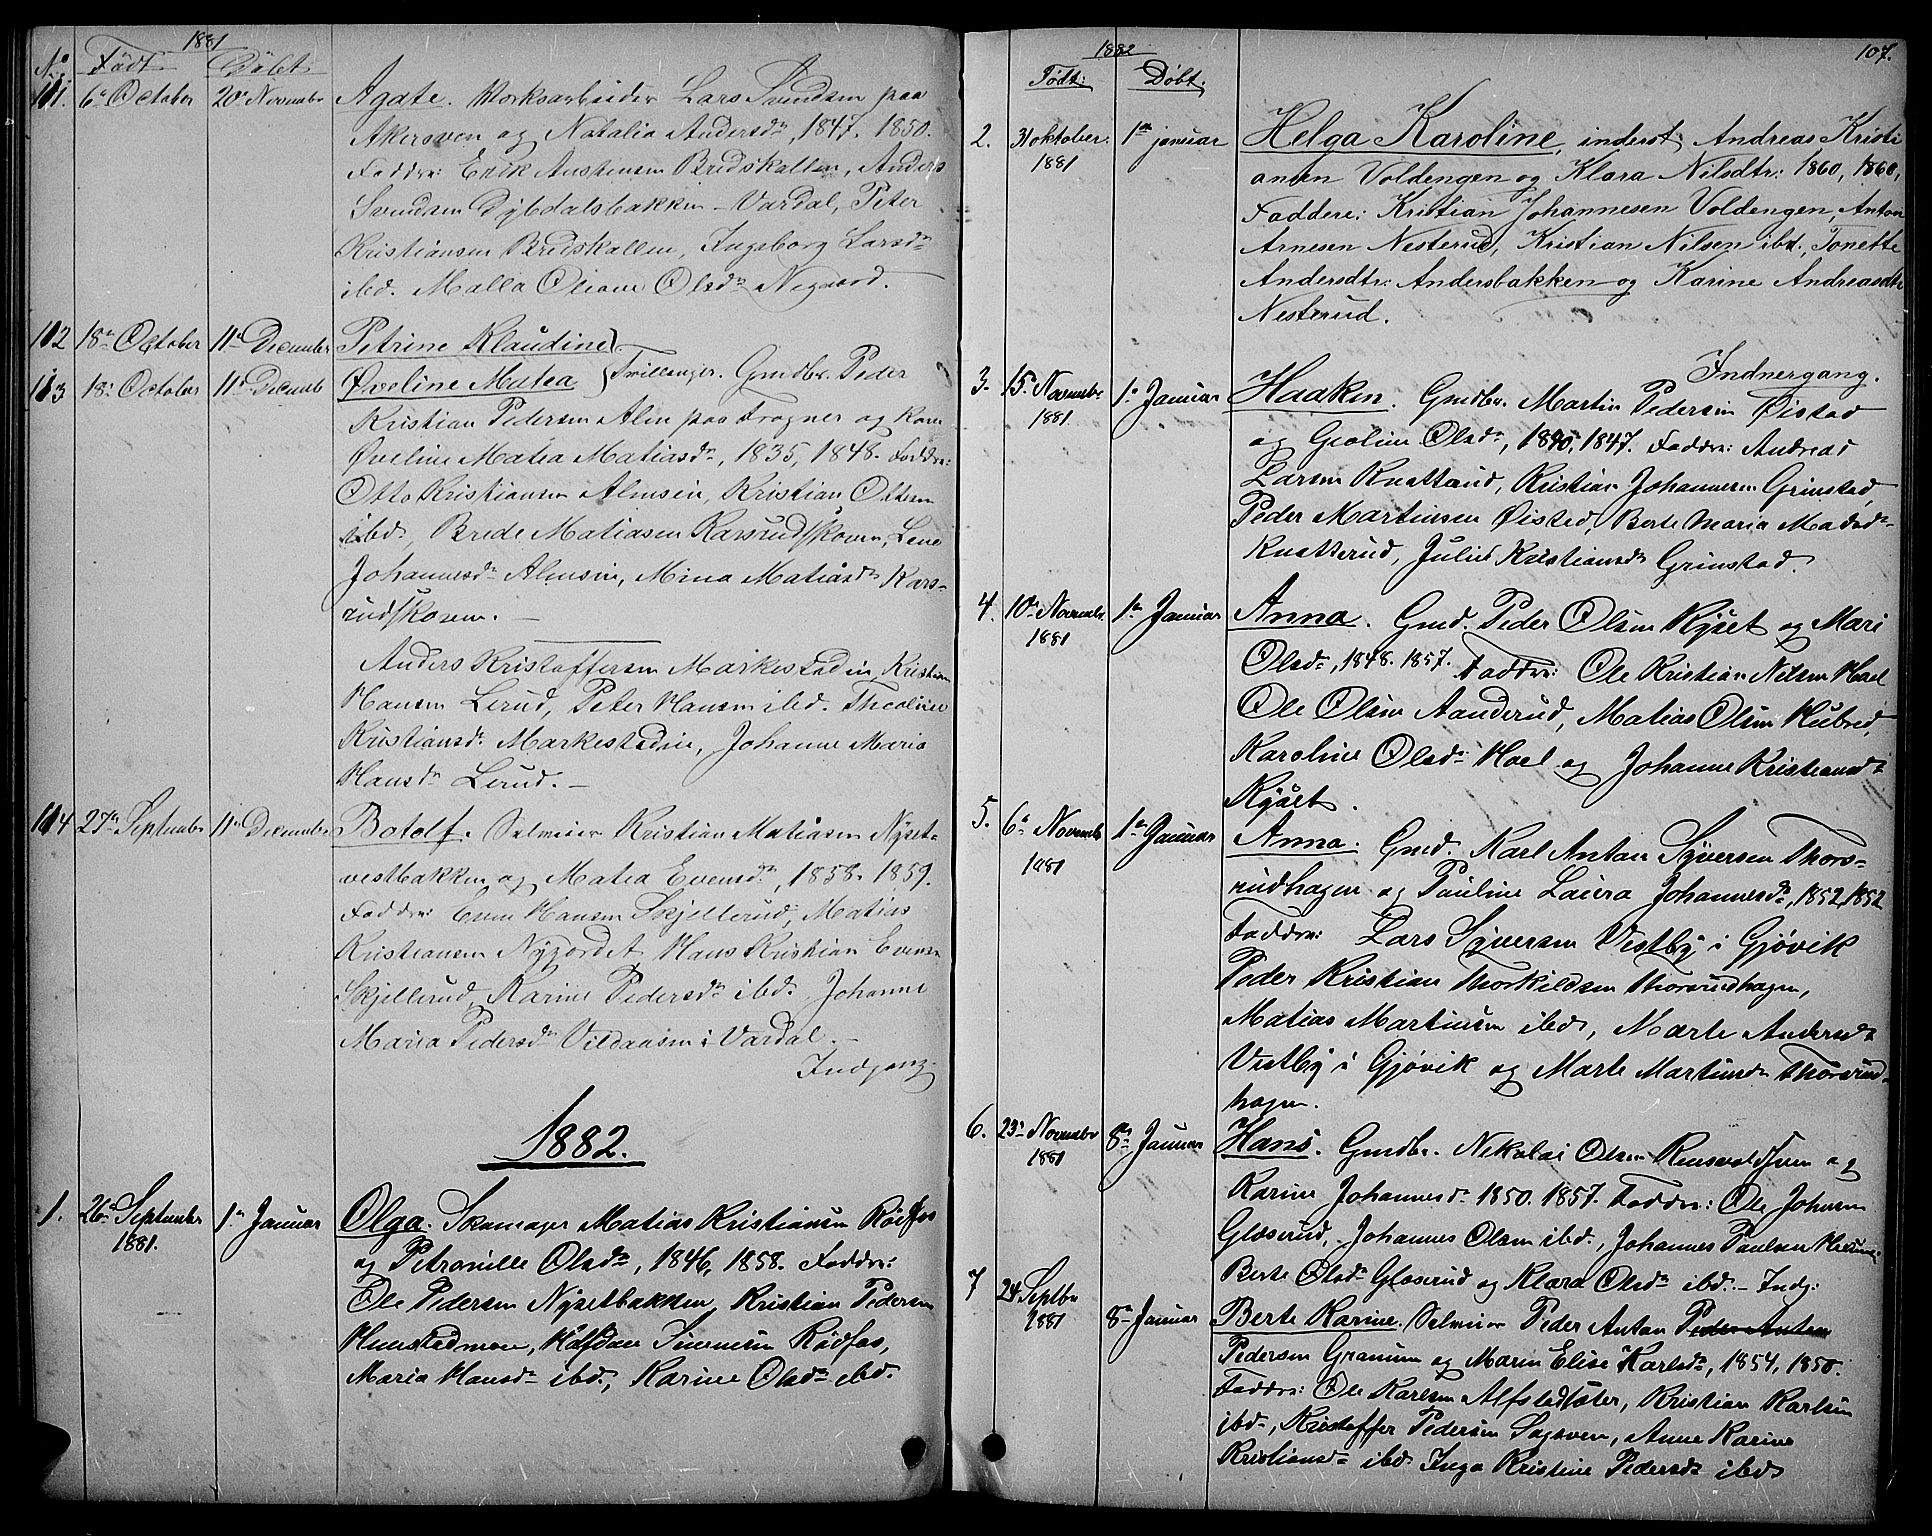 1881
No Født Døbt
111. 6te October 20de Novembr Agate. Værksarbeider Lars Svendsen paa
Akersveen og Natalia Andersdr, 1847. 1850.
Faddre: Erik Austensen Bredskallen, Anders
Svendsen Dybdalsbakken - Vardal, Peter
Kristiansen Bredskallen, Ingeborg Larsdr
ibd. Malla Oliane Olsdr Nygaard.
112 18de October 11te December Petrine Klaudine
113 18de October 11te Decemb Øveline Matea } Tvillinger. Gmdbr. Peder
Kristian Pedersen Alm paa Frogner og Kone
Øveline Matea Matiasdr, 1835, 1848. Faddre:
Otto Kristiansen Almsein, Kristian Ottesen
ibd, Brede Matiasen Karsrudskoven, Lene
Johannesdr Almsein, Mina Matiasdr Kars-
rudskoven. -
Anders Kristoffersen Markestadein, Kristian
Hansen Lerud, Peter Hansen ibd. Theoline
Kristiansdr. Markestadein, Johanne Maria
Hansdr Lerud. -
114 27de Septembr 11te December Botolf. Selveier Kristian Matiasen Nyset-
vestbakken og Matea Evensdr, 1858. 1859.
Faddre: Even Hansen Skjellerud, Matias
Kristiansen Nygordet, Hans Kristian Evensen
Skjellerud, Karine Pedersdr ibd. Johanne
Maria Pedersdr Vildaasen i Vardal. -
Indgang
1882.
1. 26de September 1ste Januar Olga. Skomager Matias Kristiansen Rödfos
1881. og Petronille Olsdr, 1846, 1858. Faddre:
Ole Pedersen Nysetbakken, Kristian Pedersen
Hunstadmoen, Halfdan Simensen Rödfos,
Maria Hansdr ibd, Karine Olsdr ibd.
107.
1882
Født: Døbt.
2. 31 oktober 1ste januar Helga Karoline, inderst Andreas Kristi
1881 ansen Voldengen og Klara Nilsdtr: 1860, 1860,
Faddere: Kristian Johannesen Voldengen, Anton
Arnesen Nesterud, Kristian Nilsen ibd, Tonette
Andersdtr: Andersbakken og Karine Andreasdtr
Nesterud.
Indnergang.
3. 15de Novembr 1ste Januar Haaken. Gmdbr. Martin Pedersen Øistad
1881 og Geoline Olsdr, 1840, 1847. Faddre: Andreas
Larsen Knatterud, Kristian Johannesen Grinstad,
Peder Martinsen Øistad, Berte Maria Madsdr
Knatterud, Julie Kristiansdr Grinstad.
4. 10de Novembr 1ste Januar Anna. Gmd. Peder Olsen Ryset og Mari
1881 Olsdr, 1848. 1857. Faddre: Ole Kristian Nilsen Hoel
Ole Olsen Aanderud, Matias Olsen Hubred,
Karoline Olsdr Hoel og Johanne Kristiansdr
Ryset.
5. 6te Novembr 1ste Januar Anna. Gmd. Karl Anton Syversen Thors-
1881 rudhagen og Pauline Laura Johannesdr, 1852, 1852
Faddre: Lars Syversen Vestby i Gjøvik
Peder Kristian Thorkildsen Thorsrudhagen,
Matias Martinsen ibd, Marte Andersdr
Vestby i Gjøvik og Marte Martinsdr Thorsrud-
hagen.
6. 23de Novembr 8de Januar Hans. Gmdbr. Nikolai Olsen og
1881 Karine Johannesdr 1850. 1857. Faddre: Ole Johnsen
Gloserud, Johannes Olsen ibd, Johannes Paulsen
Berte Olsdr Gloserud og Klara Olsdr ibd. - Indg:
7 24 Septbr 8de Januar Berte Karine. Selveier Peder Anton Peder Anton
1881 Pedersen Granum og Maren Elise Karlsdr, 1854, 1850.
Faddre: Ole Karlsen Alfstadsæter, Kristian Karlsen
ibd, Kristoffer Pedersen Sagsveen, Anne Karine
Kristiansdr ibd. Inga Kristine Pedersdr ibd